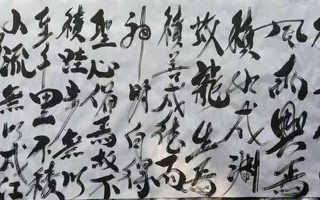 風雨興焉
積水成淵
蛟龍生焉
積善成德而
神明自得
聖心備焉故不
積跬步無以
至千里不積
小流無以成江